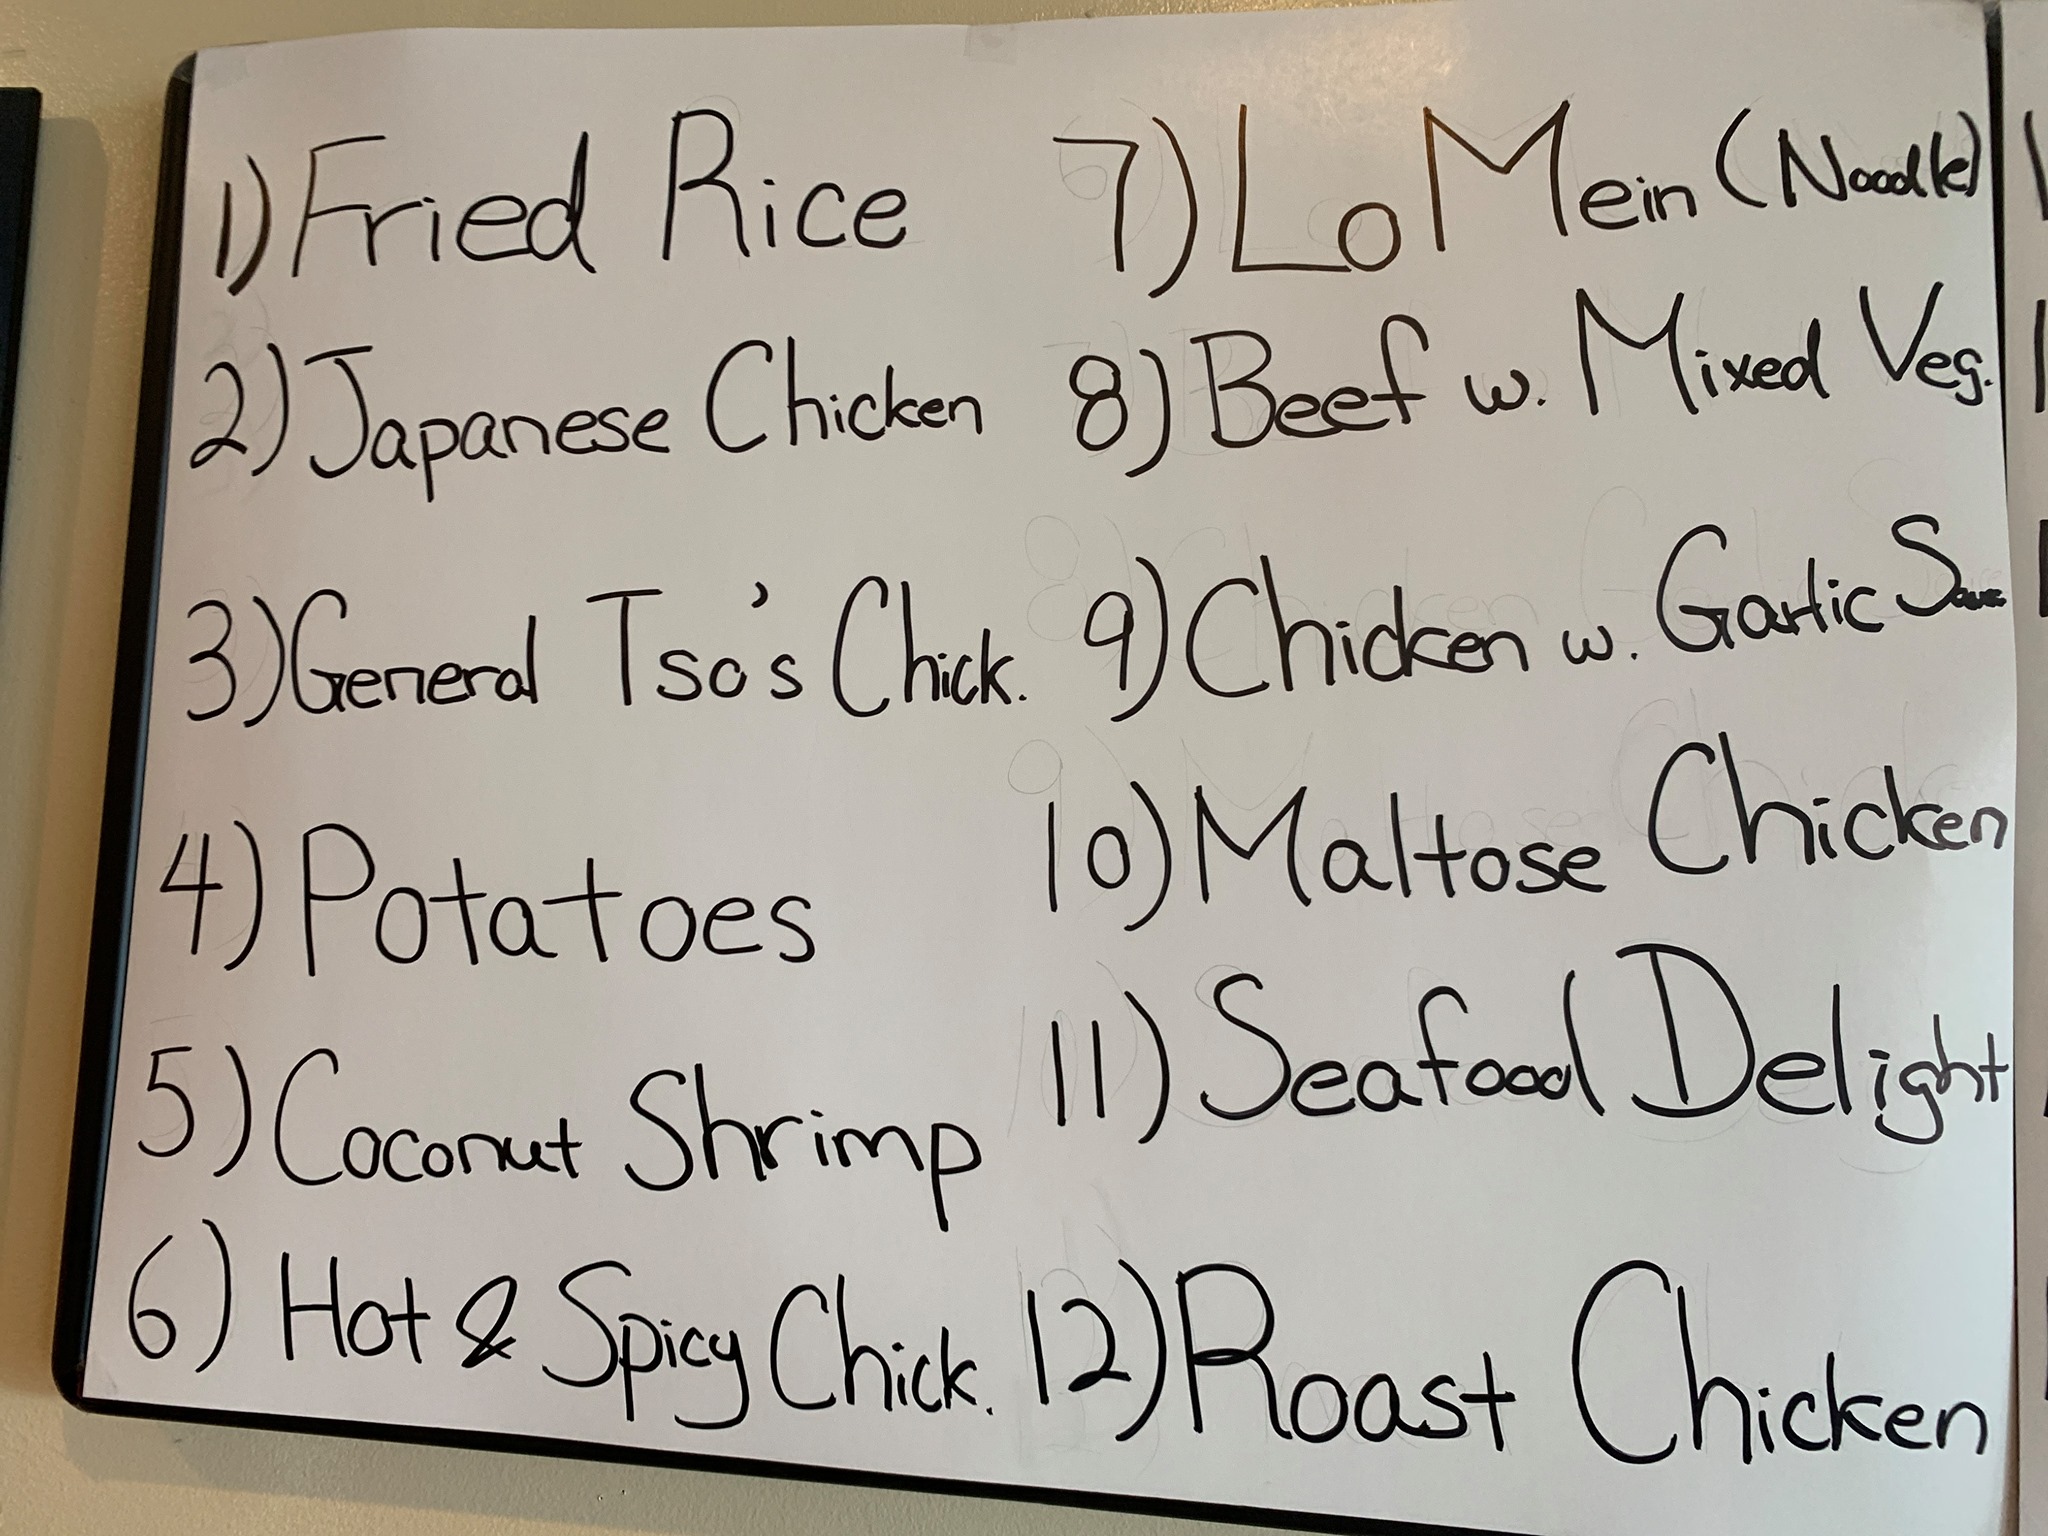 1) Fried Rice
2) Japanese Chicken
3) General Tso's Chick.
4) Potatoes
5) Coconut Shrimp
6) Hot & Spicy Chick.
7) Lo Mein (Noodle)
8) Beef w. Mixed Veg.
9) Chicken w. Garlic Sauce
10) Maltose Chicken
11) Seafood Delight
12) Roast Chicken